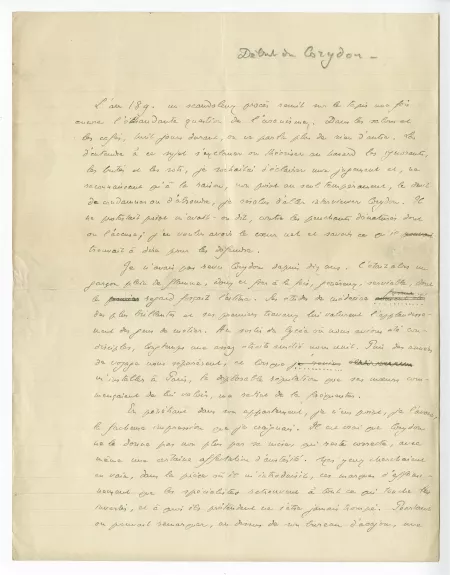 Début du Corydon –
L'an 189. un scandaleux procès remit sur le tapis une fois
encore l'irritante question de l'uranisme. Dans les salons et
les cafés, huit jours durant, on ne parla plus de rien d'autre. Las
d'entendre à ce sujet s'exclamer ou théoriser au hasard les ignorants,
les butés et les sots, je souhaitai d'éclairer mon jugement et, ne
reconnaissant qu'à la raison, non point au seul tempérament, le droit
de condamner ou d'absoudre, je résolus d'aller interviewer Corydon. Il
ne protestait point m'avait-on dit, contre les penchants dénaturés dont
on l'accusait; j'en voulus avoir le cœur net et savoir ce qu'il
trouvait à dire pour les défendre.
Je n'avais pas revu Corydon depuis dix ans. C'était alors un
garçon plein de flamme, doux et fier à la fois, généreux, serviable, dont
le regard forçait l'estime. Ses études de médecine
des plus brillantes et ses premiers travaux lui valurent l'applaudisse-
ment des gens de métier. Au sortir du lycée où nous avions été con-
disciples, longtemps une assez étroite amitié nous unit. Puis des années
de voyage nous séparèrent, et lorsque je
m'installer à Paris, la déplorable réputation que ses mœurs com-
mençaient de lui valoir, me retint de le fréquenter.
En pénétrant dans son appartement, je n'eus point, je l'avoue,
la fâcheuse impression que je craignais. Il est vrai que Corydon
ne la donne pas non plus par sa mise qui reste correcte, avec
même une certaine affectation d'austérité. Mes yeux cherchaient
en vain, dans la pièce où il m'introduisit, ces marques d'effémi-
nement que les spécialistes retrouvent à tout ce qui touche les
invertis, et à quoi ils prétendent ne s'être jamais trompés. Pourtant
on pouvait remarquer, au dessus de son bureau d'acajou, une